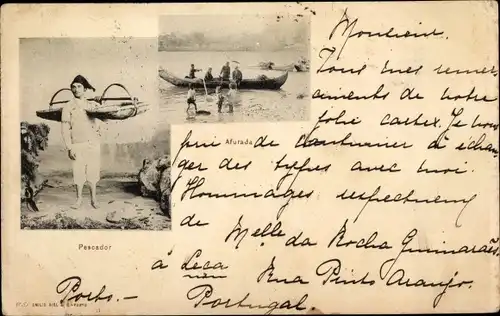 Monsieur.
Tous mes remer
ciments de votre
jolie carte. Je vous
Afurada
prie de continuer à échan
ger des types avec moi.
Hommages respectueux
de Melle da Rocha Guimarães
Pescador
à Leça Rua Pinto Araujo.
Porto. - Portugal.